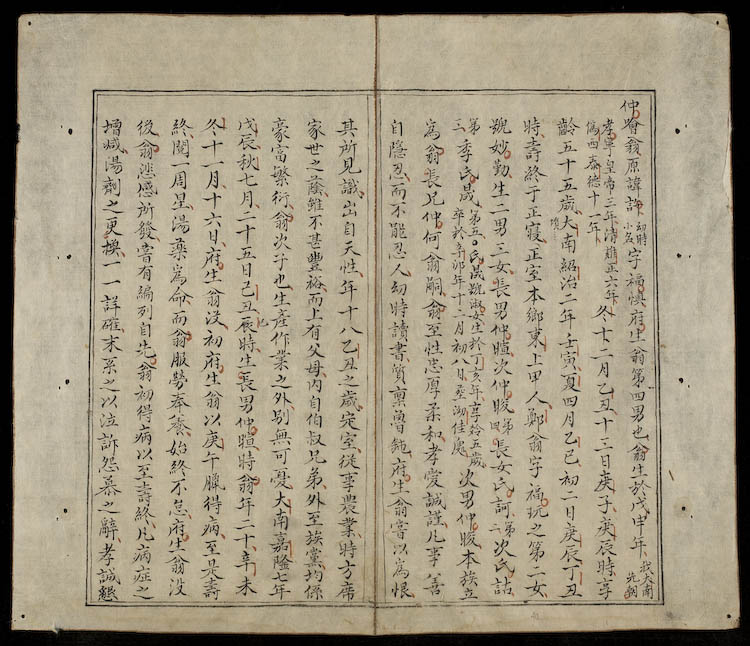 仲會翁原諱訢幼時小名字福慎府生翁第四男也翁生於戊申年我大南先朝
孝寧皇帝三年清雍正六年偽西泰德十一年冬十二月乙丑十三日庚子庚辰時享
齡五十五歲大南紹治二年壬寅夏四月乙巳初二日庚辰丁丑
時壽終于正寢正室本鄉東上甲人鄭翁字福玩之第二女
號妙勤生二男三女長男仲暄次仲晙第四長女氏訶第二次氏詁
第三季氏晟第五氏晟號淑女生於丁亥年享拾五歲卒於辛卯年十二月初八日墓洳佳處次男仲晙本族立
為翁長兄仲何翁嗣翁至性忠厚柔和孝愛誠謹凡事善
自隱忍而不能忍人幼時讀書質稟魯鈍府生翁嘗以為恨
其所見識出自天性年十八乙丑之歲定室從事農業時方席
家世之蔭雖不甚豐裕而上有父母內自伯叔兄弟外至族黨均係
豪富繁衍翁次子也生產作業之外別無可憂大南嘉隆七年
戊辰秋七月二十五日己丑辰時生長男仲暄時翁年二十辛未
冬十一月十六日府生翁沒初府生翁以庚午臘得病至是壽
終閱一周星湯藥為命而翁服勞奉養始終不怠府生翁沒
後翁悲慼所發嘗有編列自先翁初得病以至壽終凡病症之
增減湯劑之更換一一詳確末系之以泣訴怨慕之辭孝誠懇